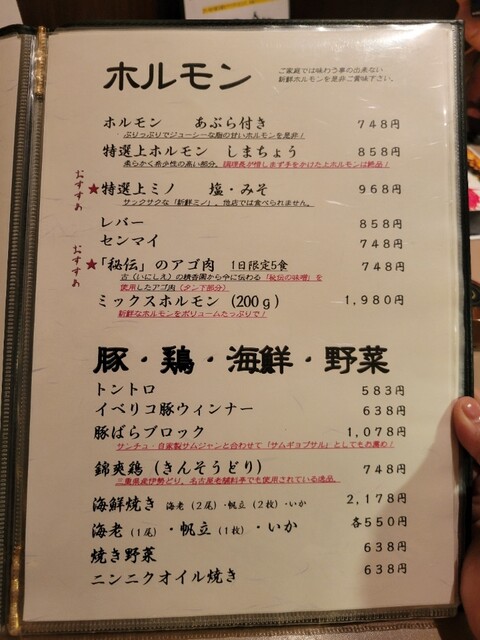 ホルモン
ご家庭では味わう事の出来ない
新鮮ホルモンを是非ご賞味下さい。
ホルモン あぶら付き 748円
ぷりっぷりでジューシーな脂の甘いホルモンを是非！
特選上ホルモン しまちょう 858円
柔らかく希少性の高い部分。調理長が惜しまず手をかけた上ホルモンは絶品！
おすすめ
★特選上ミノ 塩・みそ 968円
サックサクな「新鮮ミノ」。他店では食べられません。
レバー 858円
センマイ 748円
おすすめ
★「秘伝」のアゴ肉 1日限定5食 748円
古(いにしえ)の精香園から今に伝わる「秘伝の味噌」を
使用したアゴ肉(タン下部分)
ミックスホルモン(200g) 1,980円
新鮮なホルモンをボリュームたっぷりで！
豚・鶏・海鮮・野菜
トントロ 583円
イベリコ豚ウィンナー 638円
豚ばらブロック 1,078円
サンチュ・自家製サムジャンと合わせて「サムギョプサル」としてもお薦め！
錦爽鶏(きんそうどり) 748円
三重県産伊勢どり。名古屋老舗料亭でも使用されている逸品。
海鮮焼き 海老(2尾)・帆立(2枚)・いか 2,178円
海老(1尾)・帆立(1枚)・いか 各550円
焼き野菜 638円
ニンニクオイル焼き 638円